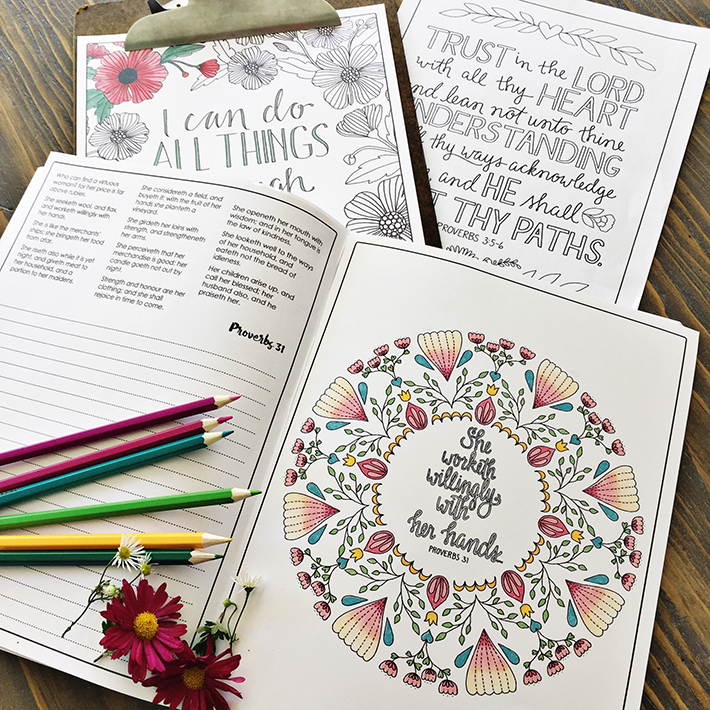 I can do
ALL THINGS
TRUST in the LORD
with all thy HEART
and lean not unto thine
UNDERSTANDING
thy ways acknowledge
and HE shall
THY PATHS.
PROVERBS 3:5-6
Who can find a virtuous
woman? for her price is far
above rubies.
She seeketh wool, and flax,
and worketh willingly with
her hands.
She is like the merchants'
ships; she bringeth her food
from afar.
She riseth also while it is yet
night, and giveth meat to
her household, and a
portion to her maidens.
She considereth a field, and
buyeth it: with the fruit of her
hands she planteth a
vineyard.
She girdeth her loins with
strength, and strengtheneth
her arms.
She perceiveth that her
merchandise is good: her
candle goeth not out by
Strength and honour are her
clothing; and she shall
rejoice in time to come.
She openeth her mouth with
wisdom; and in her tongue is
the law of kindness.
She looketh well to the ways
of her household, and
eateth not the bread of
idleness.
Her children arise up, and
call her blessed; her
husband also, and he
praiseth her.
Proverbs 31
She
worketh
willingly
with
her hands.
PROVERBS 31